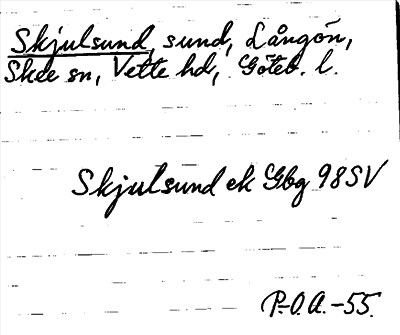 Skjulsund, sund, Långön,
Skee sn, Vette hd, Göteb. l.
Skjulsund ek Gbg 98SV
P-O.A.-55.